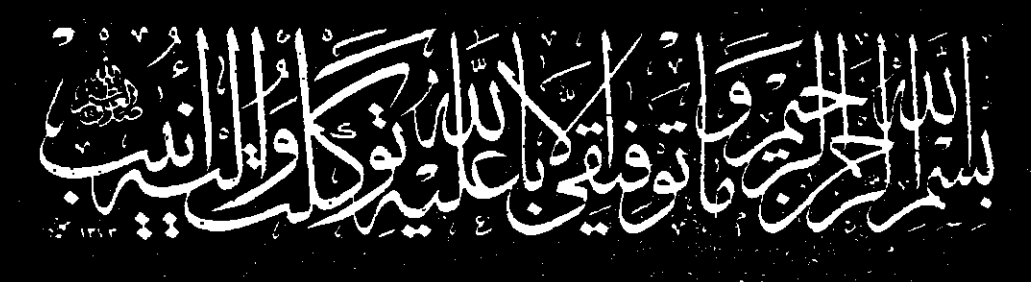 بسم الله الرحمن الرحيم وما توفيقي إلا بالله عليه توكلت وإليه أنيب
صدق الله العزيز
١٣١٣